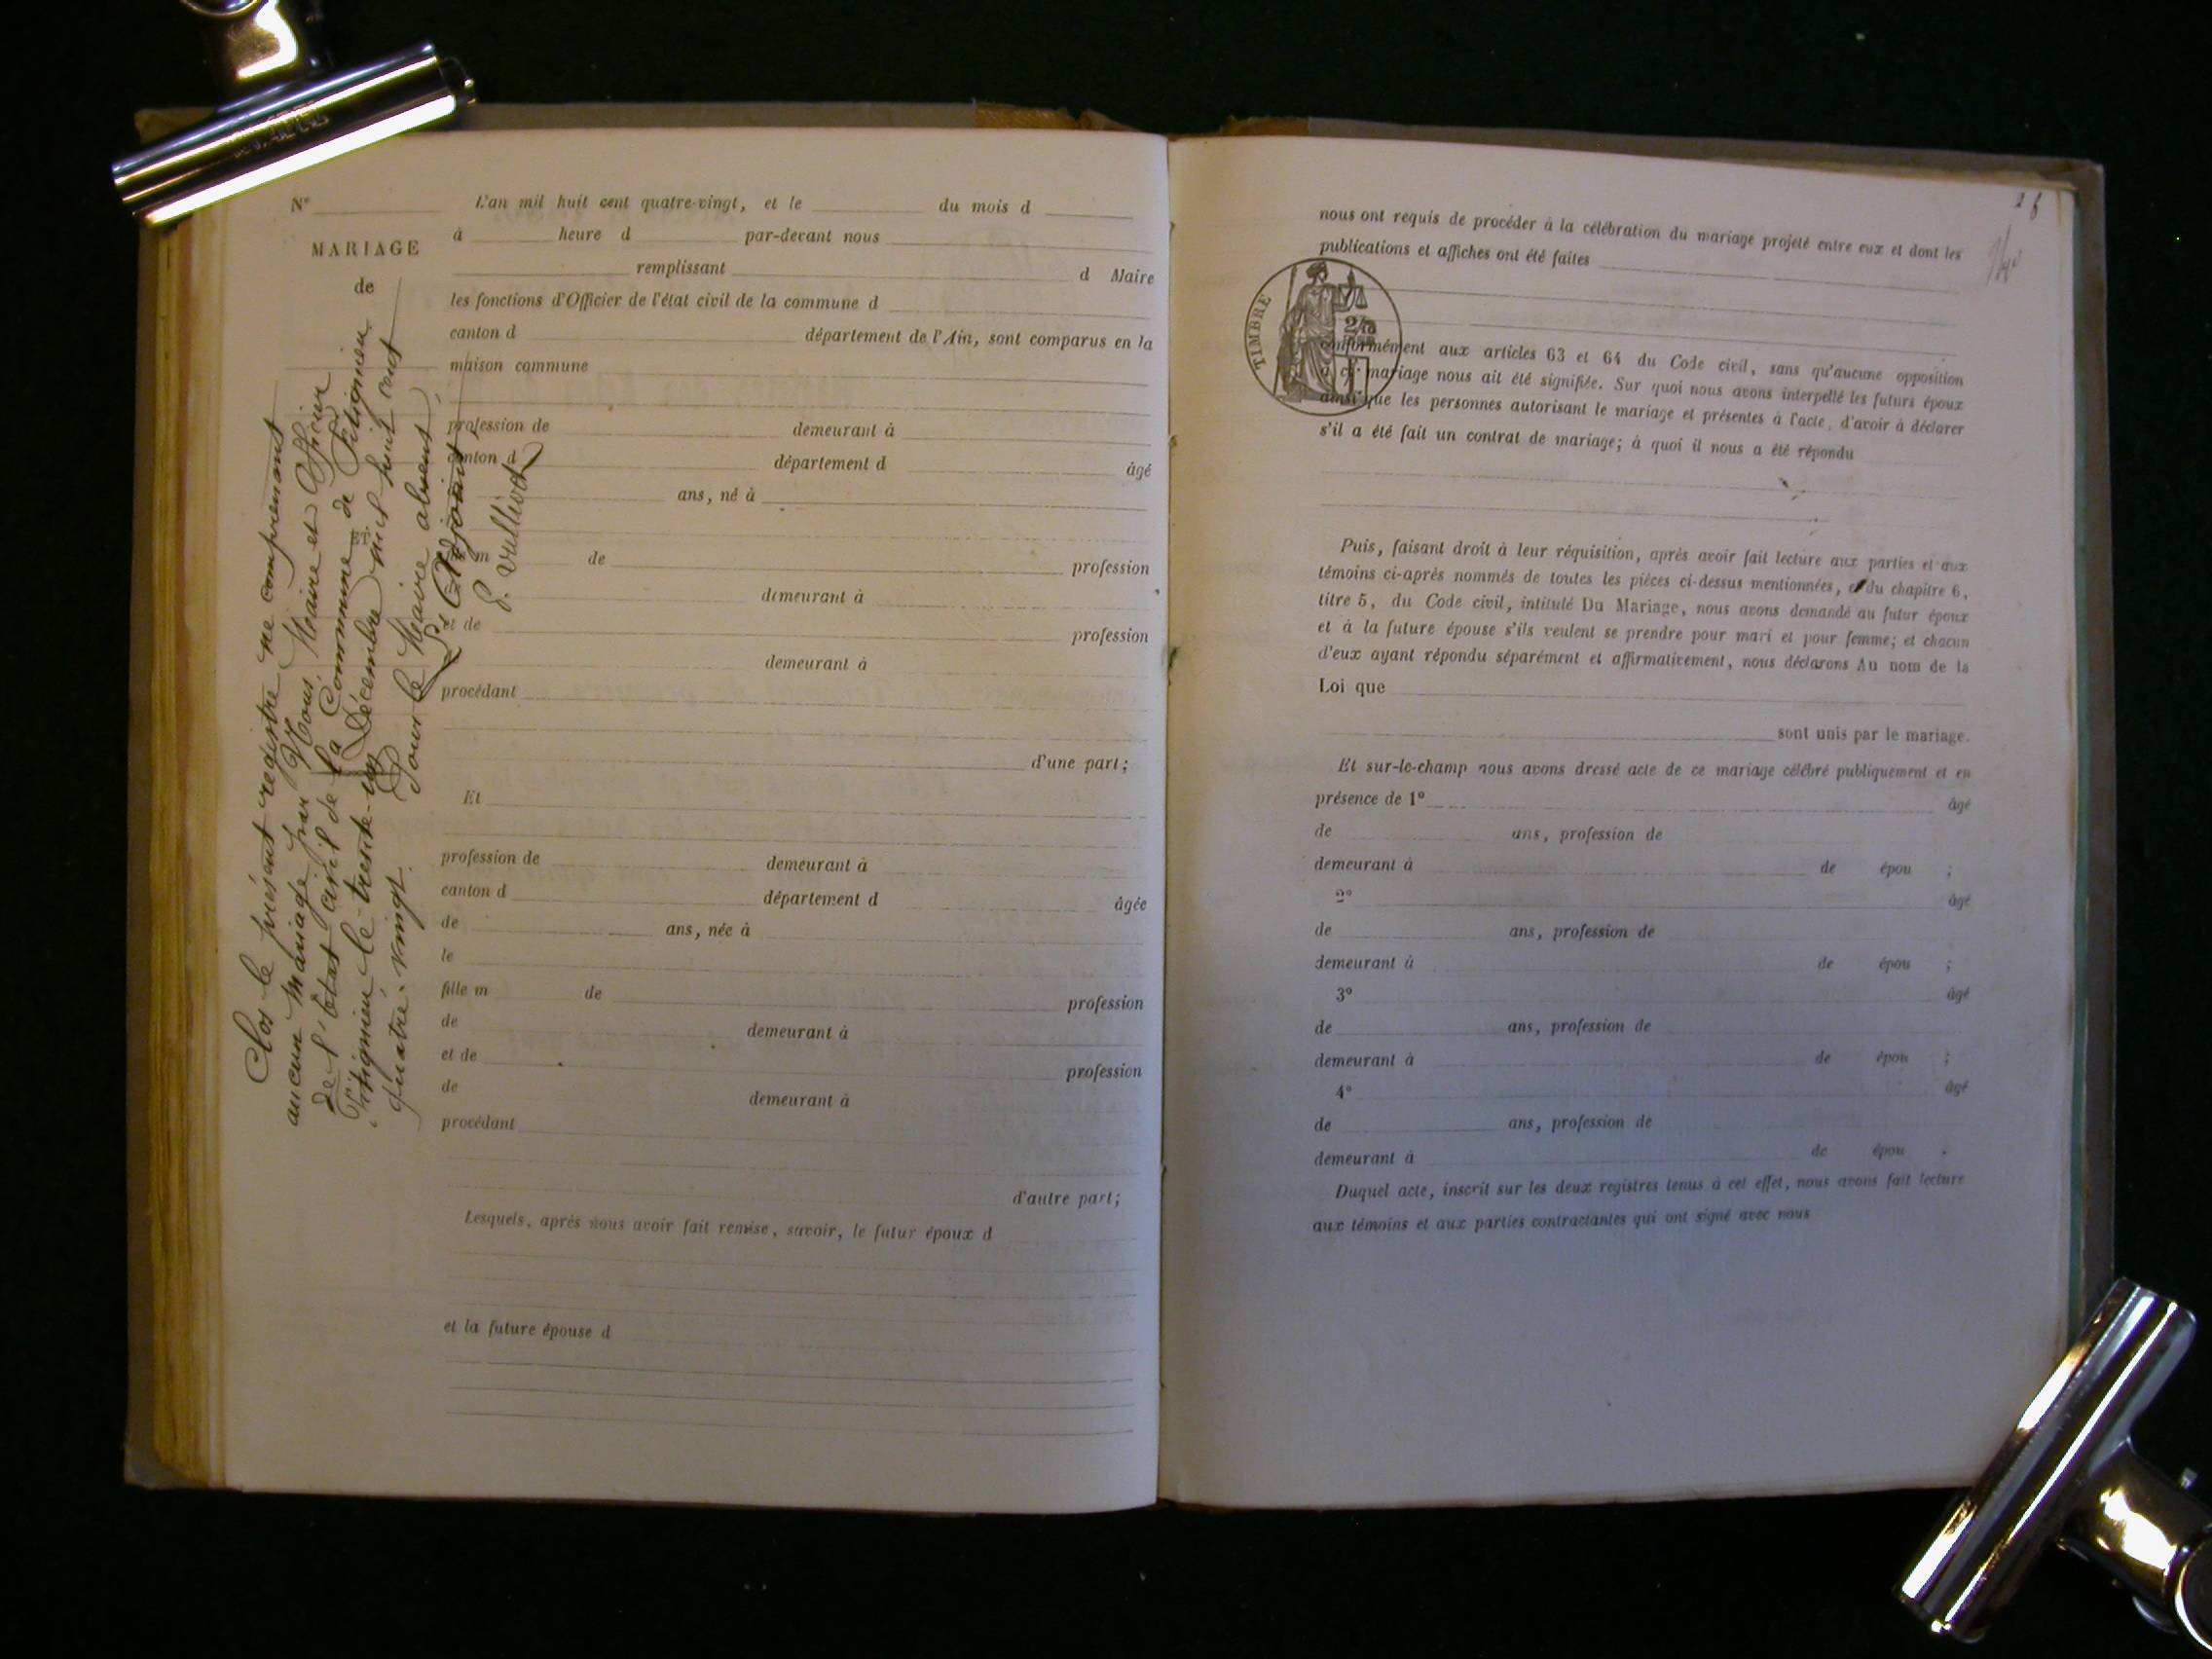 N°
MARIAGE
de
ET
Clos le présent registre ne comprenant
aucun mariage par Nous, Maire et Officier
de l'état civil de la Commune de
le trente-un Décembre mil huit cent
quatre-vingt.
Pour le Maire absent,
L'Adjoint,
L'an mil huit cent quatre-vingt, et le du mois d
à heure d par-devant nous
remplissant d Maire
les fonctions d'Officier de l'état civil de la commune d
canton d département de l'Ain, sont comparus en la
maison commune
profession de demeurant à
canton d département d âgé
ans, né à
m de profession
demeurant à
et de profession
demeurant à
procédant
d'une part;
Et
profession de demeurant à
canton d département d âgée
de ans, née à
le
fille m de profession
de demeurant à
et de profession
de demeurant à
procédant
d'autre part;
Lesquels, après nous avoir fait remise, savoir, le futur époux d
et la future épouse d
nous ont requis de procéder à la célébration du mariage projeté entre eux et dont les
publications et affiches ont été faites
TIMBRE
conformément aux articles 63 et 64 du Code civil, sans qu'aucune opposition
à ce mariage nous ait été signifiée. Sur quoi nous avons interpellé les futurs époux
ainsi que les personnes autorisant le mariage et présentes à l'acte, d'avoir à déclarer
s'il a été fait un contrat de mariage; à quoi il nous a été répondu
Puis, faisant droit à leur réquisition, après avoir fait lecture aux parties et aux
témoins ci-après nommés de toutes les pièces ci-dessus mentionnées, et du chapitre 6,
titre 5, du Code civil, intitulé Du Mariage, nous avons demandé au futur époux
et à la future épouse s'ils veulent se prendre pour mari et pour femme; et chacun
d'eux ayant répondu séparément et affirmativement, nous déclarons Au nom de la
Loi que
sont unis par le mariage.
Et sur-le-champ nous avons dressé acte de ce mariage célébré publiquement et en
présence de 1° âgé
de ans, profession de
demeurant à de épou ;
2° âgé
de ans, profession de
demeurant à de épou ;
3° âgé
de ans, profession de
demeurant à de épou ;
4° âgé
de ans, profession de
demeurant à de épou .
Duquel acte, inscrit sur les deux registres tenus à cet effet, nous avons fait lecture
aux témoins et aux parties contractantes qui ont signé avec nous